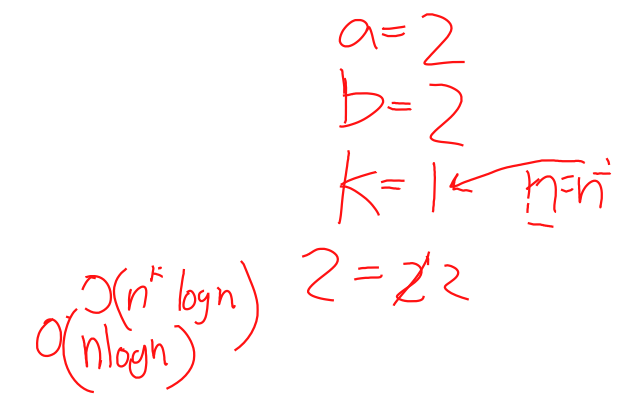 a=2
b=2
k=1 n=n¹
2=2¹ 2
O(nᵏ logn)
O(nlogn)